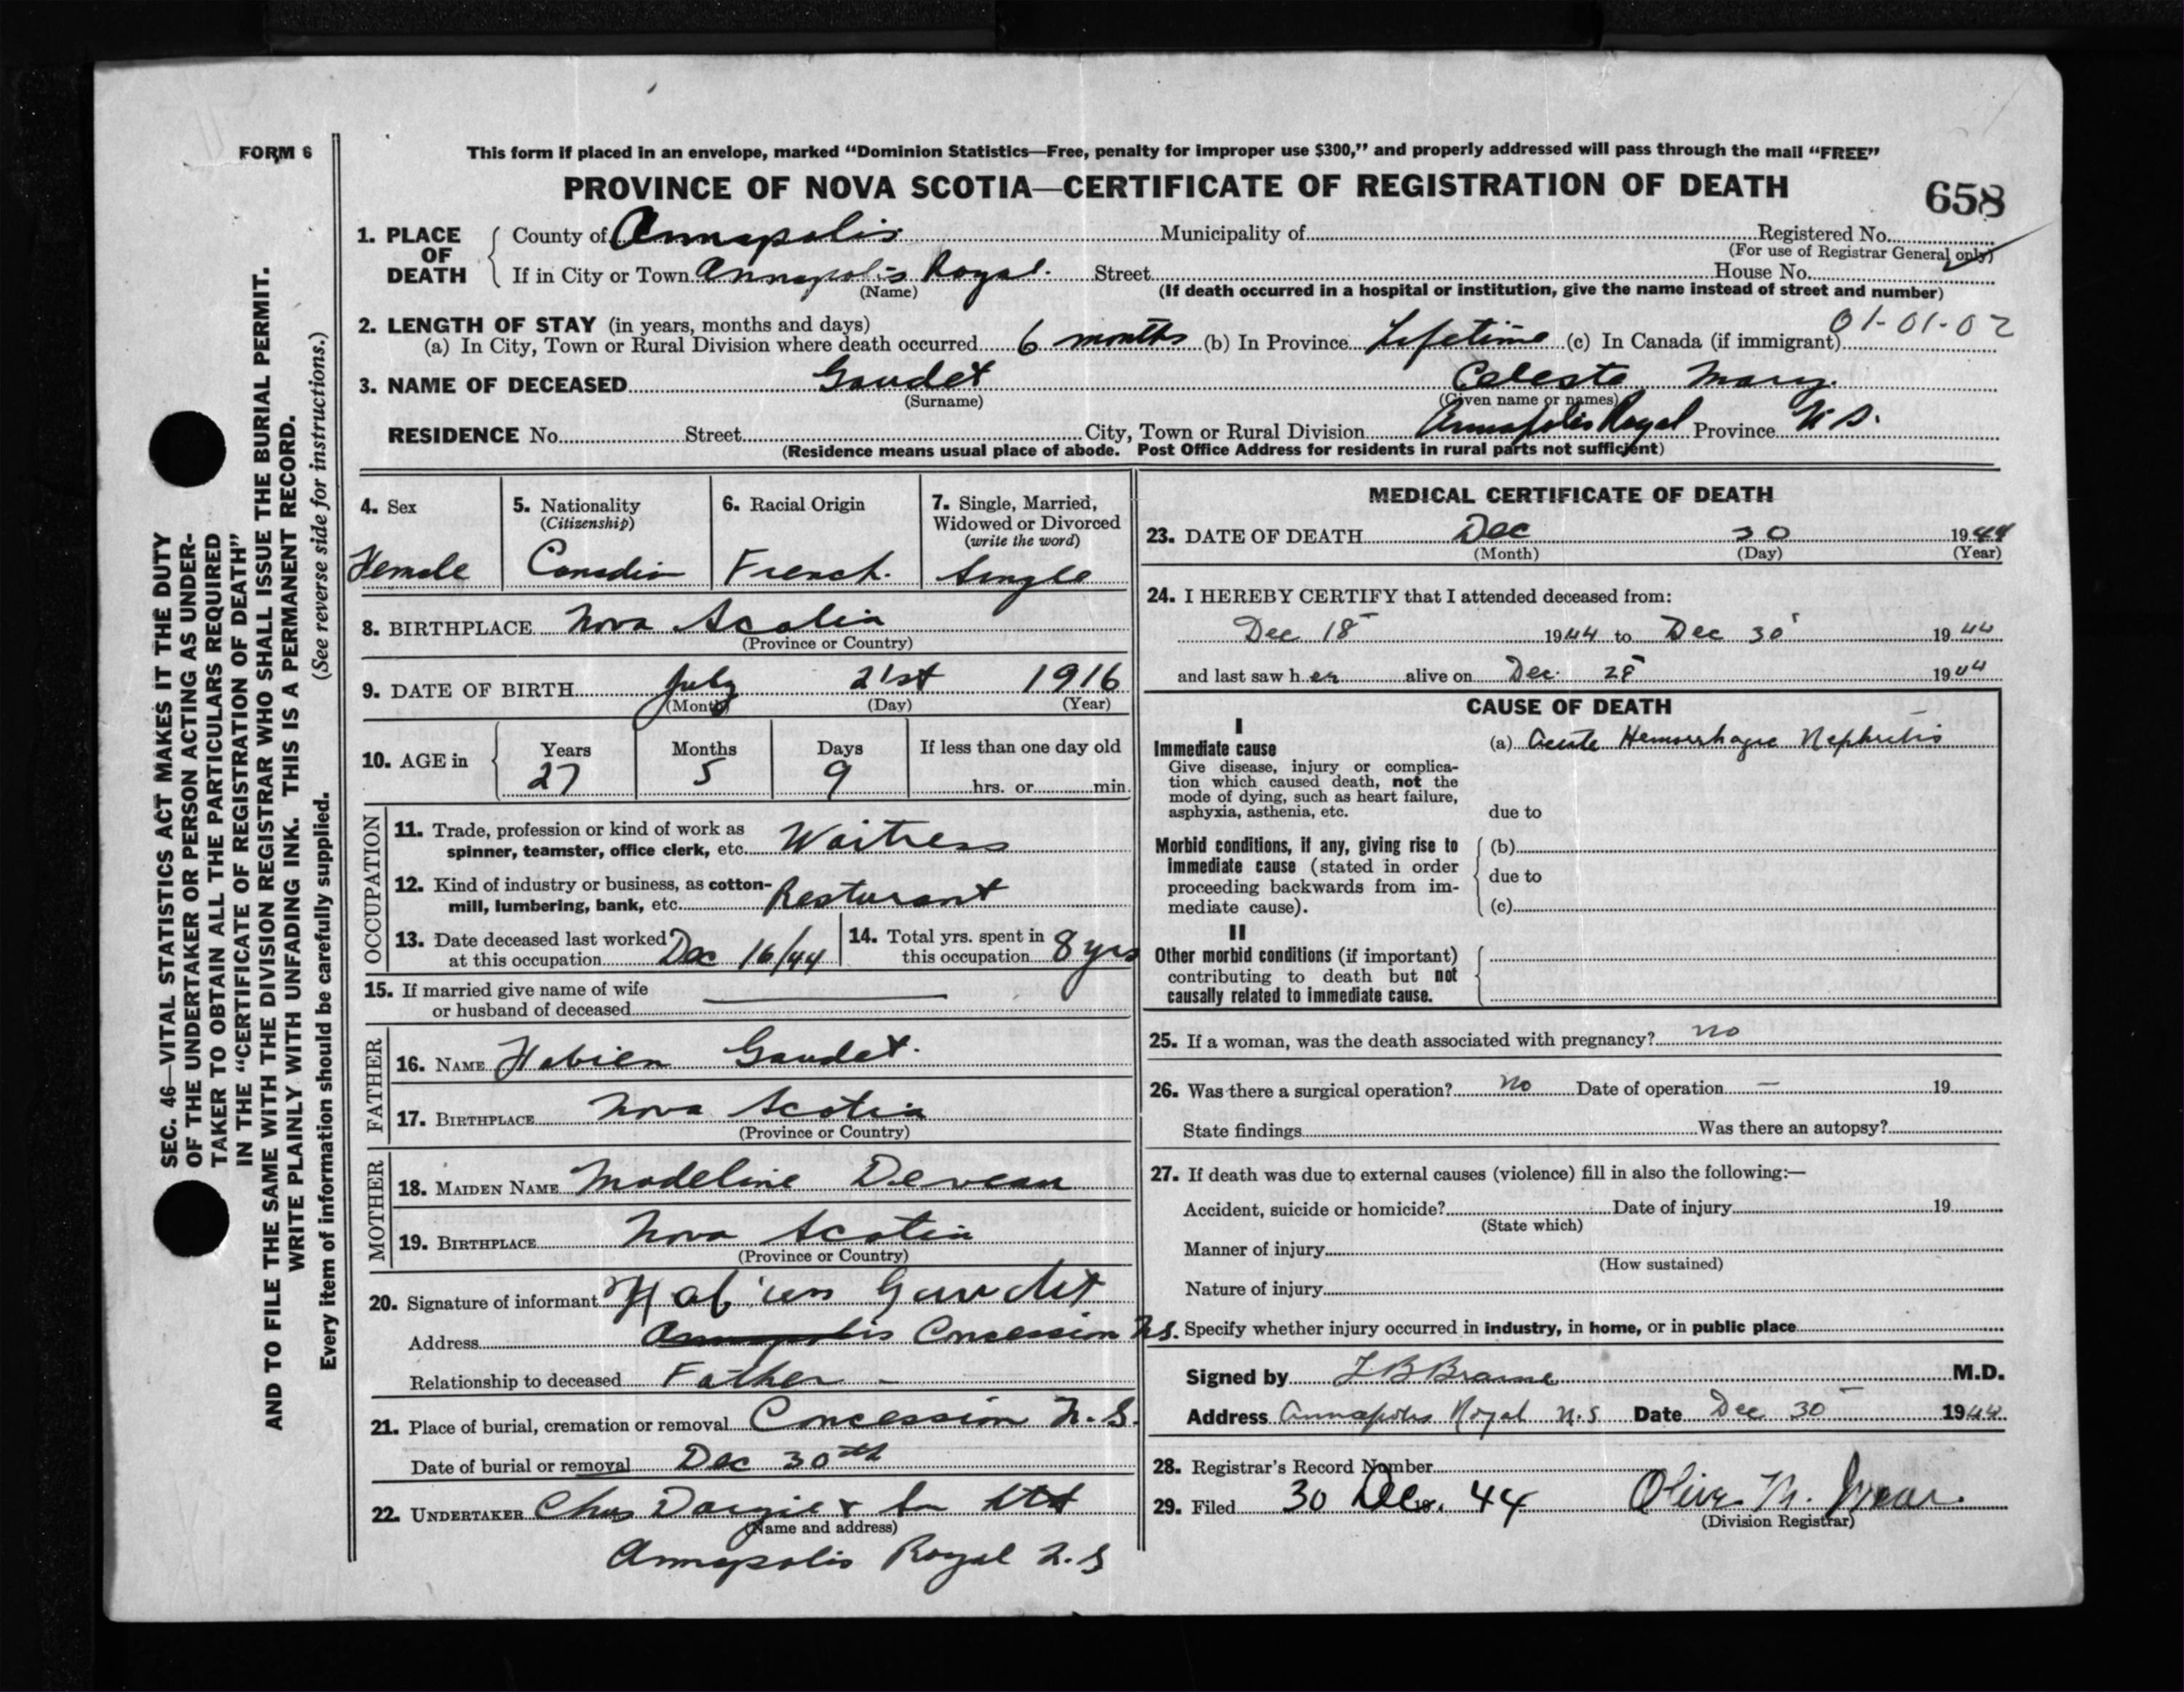 FORM 6
This form if placed in an envelope, marked “Dominion Statistics—Free, penalty for improper use $300,” and properly addressed will pass through the mail “FREE”
PROVINCE OF NOVA SCOTIA—CERTIFICATE OF REGISTRATION OF DEATH
658
1. PLACE OF DEATH County of Annapolis Municipality of Registered No.
(For use of Registrar General only)
If in City or Town Annapolis Royal. Street House No.
(Name) (If death occurred in a hospital or institution, give the name instead of street and number)
2. LENGTH OF STAY (in years, months and days) 01-01-02
(a) In City, Town or Rural Division where death occurred 6 months (b) In Province Lifetime (c) In Canada (if immigrant)
3. NAME OF DECEASED Gaudet Celeste Mary.
(Surname) (Given name or names)
RESIDENCE No. Street City, Town or Rural Division Annapolis Royal Province N.S.
(Residence means usual place of abode. Post Office Address for residents in rural parts not sufficient)
4. Sex Female
5. Nationality (Citizenship) Canadian
6. Racial Origin French.
7. Single, Married, Widowed or Divorced (write the word) Single
8. BIRTHPLACE Nova Scotia
(Province or Country)
9. DATE OF BIRTH July 21st 1916
(Month) (Day) (Year)
10. AGE in Years 27 Months 5 Days 9 If less than one day old
hrs. or min.
OCCUPATION
11. Trade, profession or kind of work as
spinner, teamster, office clerk, etc. Waitress
12. Kind of industry or business, as cotton-
mill, lumbering, bank, etc. Resturant
13. Date deceased last worked
at this occupation Dec 16/44
14. Total yrs. spent in
this occupation 8 yrs
15. If married give name of wife
or husband of deceased
FATHER
16. NAME Habien Gaudet.
17. BIRTHPLACE Nova Scotia
(Province or Country)
MOTHER
18. MAIDEN NAME Madeline Deveau
19. BIRTHPLACE Nova Scotia
(Province or Country)
20. Signature of informant Gaudet
Address Annapolis Concession N.S.
Relationship to deceased Father -
21. Place of burial, cremation or removal Concession N.S.
Date of burial or removal Dec 30th
22. UNDERTAKER Chas Dargie &
(Name and address)
Annapolis Royal N.S
MEDICAL CERTIFICATE OF DEATH
23. DATE OF DEATH Dec 30 1944
(Month) (Day) (Year)
24. I HEREBY CERTIFY that I attended deceased from:
Dec 18 1944 to Dec 30 1944
and last saw her alive on Dec. 28 1944
CAUSE OF DEATH
I
Immediate cause (a) Acute Hemorrhagic Nephritis
Give disease, injury or complica-
tion which caused death, not the
mode of dying, such as heart failure,
asphyxia, asthenia, etc. due to
Morbid conditions, if any, giving rise to (b)
immediate cause (stated in order due to
proceeding backwards from im-
mediate cause). (c)
II
Other morbid conditions (if important)
contributing to death but not
causally related to immediate cause.
25. If a woman, was the death associated with pregnancy? no
26. Was there a surgical operation? no Date of operation — 19
State findings Was there an autopsy?
27. If death was due to external causes (violence) fill in also the following:—
Accident, suicide or homicide? Date of injury 19
(State which)
Manner of injury
(How sustained)
Nature of injury
Specify whether injury occurred in industry, in home, or in public place
Signed by Braine M.D.
Address Annapolis Royal N.S Date Dec 30 1944
28. Registrar's Record Number
29. Filed 30 Dec. 44 Olive M.
(Division Registrar)
SEC. 46—VITAL STATISTICS ACT MAKES IT THE DUTY
OF THE UNDERTAKER OR PERSON ACTING AS UNDER-
TAKER TO OBTAIN ALL THE PARTICULARS REQUIRED
IN THE “CERTIFICATE OF REGISTRATION OF DEATH”
AND TO FILE THE SAME WITH THE DIVISION REGISTRAR WHO SHALL ISSUE THE BURIAL PERMIT.
WRITE PLAINLY WITH UNFADING INK. THIS IS A PERMANENT RECORD.
Every item of information should be carefully supplied. (See reverse side for instructions.)